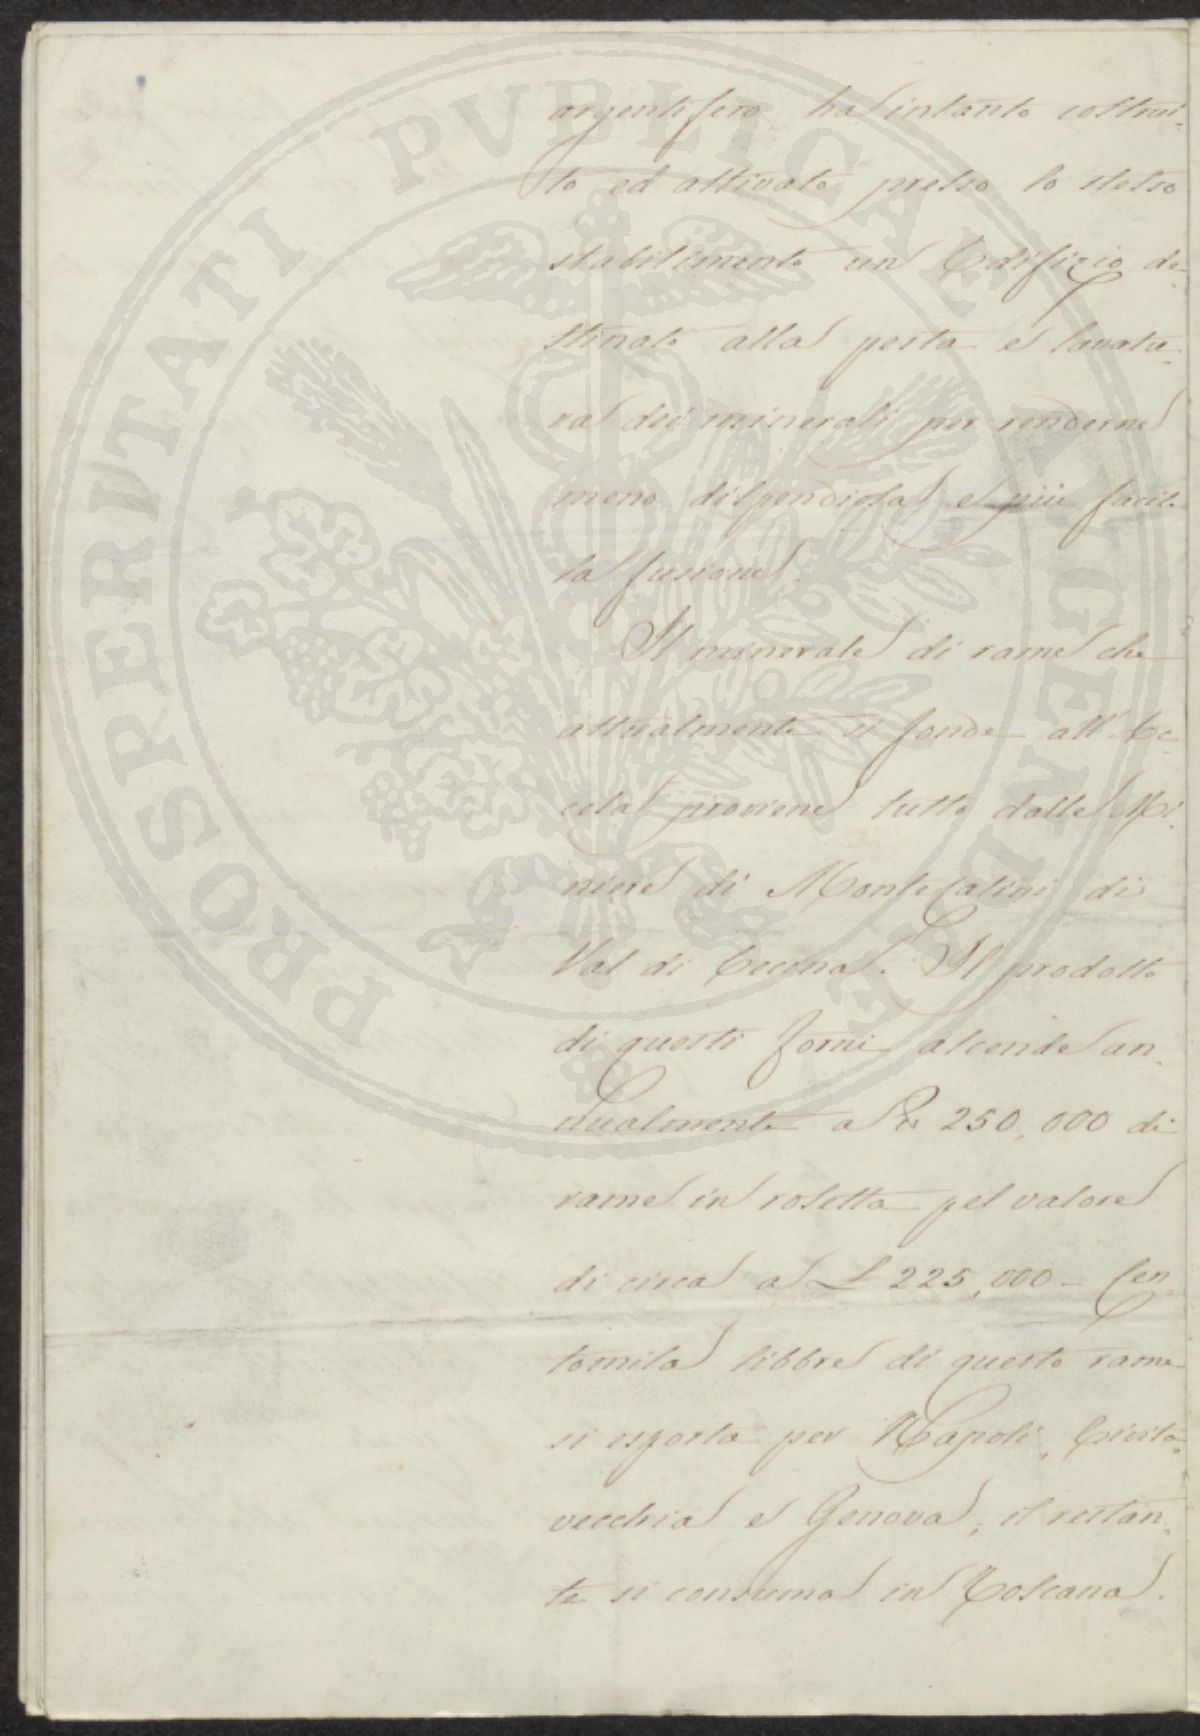 PROSPERITATI PVBLICAE AVGENDAE
argentifero ha intanto costrui-
to ed attivato presso lo stesso
stabilimento un Edifizio de-
stinato alla pesta e lavatu-
ra dei minerali per renderne
meno dispendiosa e più facile
la fusione.
Il minerale di rame che
attualmente si fonde all'Ac-
cesa proviene tutto dalle Mi-
niere di Montecatini di
Val di Cecina. Il prodotto
di questi forni ascende an-
nualmente a 250,000 di
rame in rosetta pel valore
di circa a £ 225,000 - Cen-
tomila libbre di questo rame
si esporta per Napoli, Civita-
vecchia e Genova, il restan-
te si consuma in Toscana.